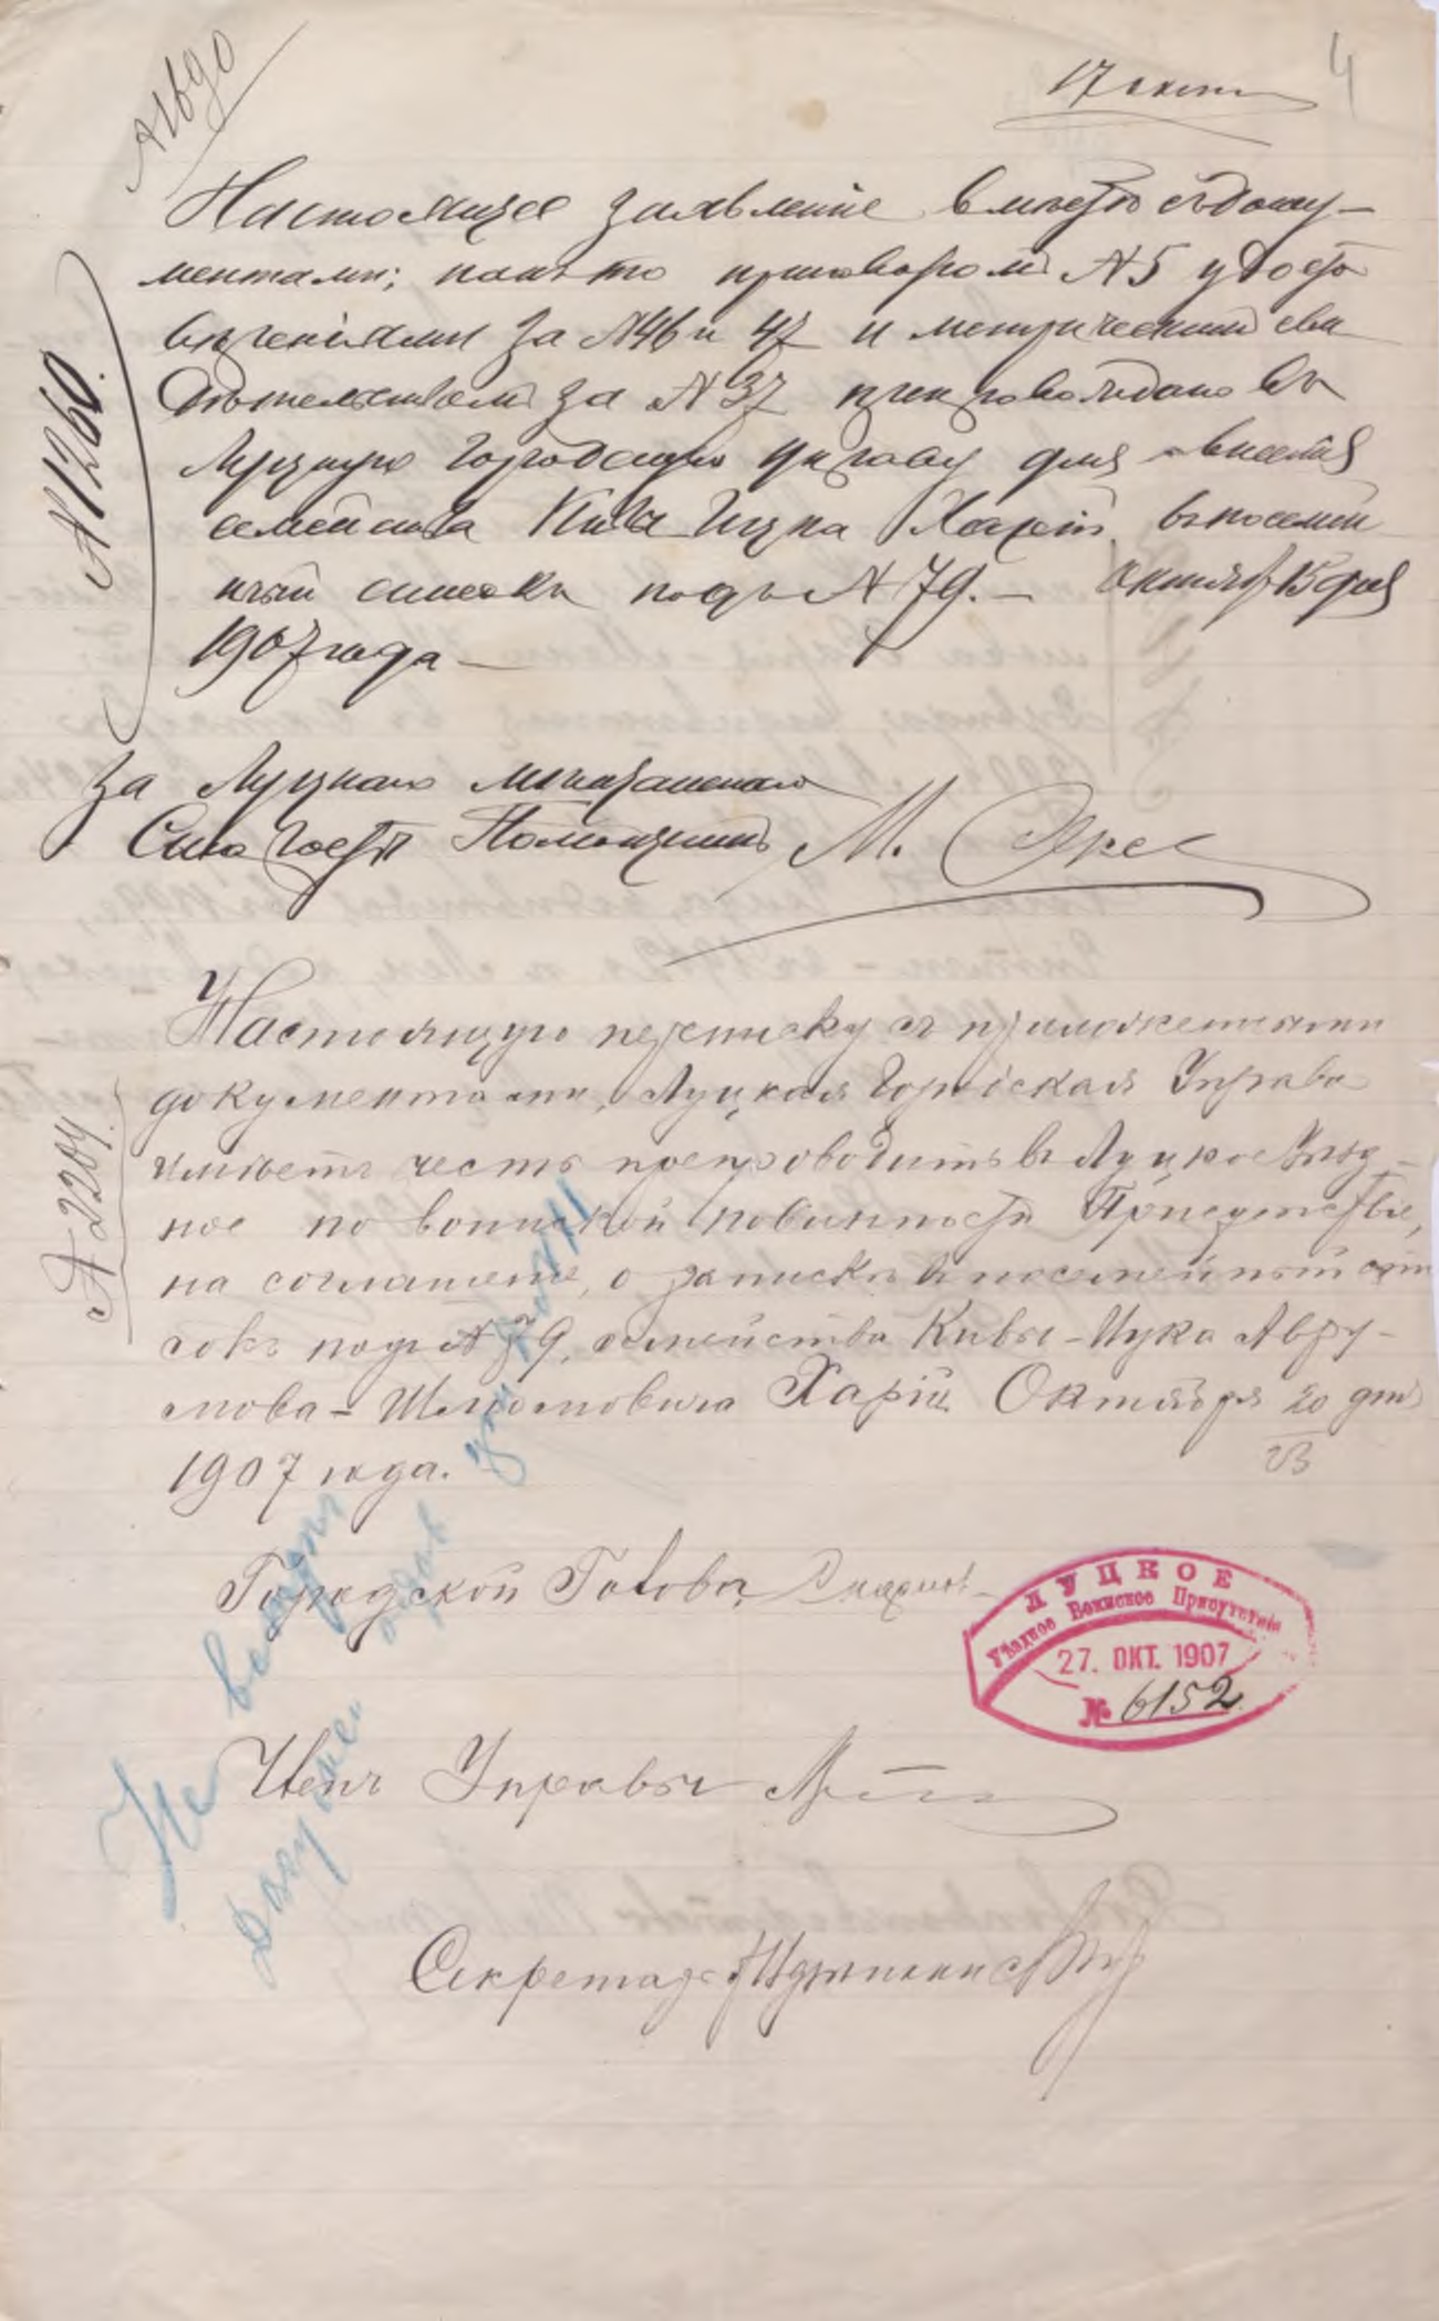 17 окт
4
Настоящее заявленіе вместѣ съ доку-
ментами; какъ то приговоромъ № 5 удосто
вѣреніями за № 46 и 47 и метрическимъ сви
дѣтельствомъ за № 37 препровождаю въ
Луцкую Городскую Управу для внесенія
семейства Кива Ицка Харій въ посемей
ный списокъ подъ № 79. — Октября 15 дня
1907 года —
№ 1260.
За Луцкаго мѣщанскаго
Старосту Помощникъ М.
Настоящую переписку съ приложенными
документами, Луцкая Городская Управа
имѣетъ честь препроводить въ Луцкое Уѣзд-
ное по воинской повинности Присутствіе,
на соглашеніе, о запискѣ въ посемейный спи
сокъ подъ № 79, семейства Кивы-Ицка Авру-
мова-Шлиомовича Харій. Октября 20 дня
23
1907 года.
№ 2204.
Городской Голова
ЛУЦКОЕ
Уѣздное Воинское Присутствіе
27. ОКТ. 1907
№ 6152
Членъ Управы
Секретарь
Не